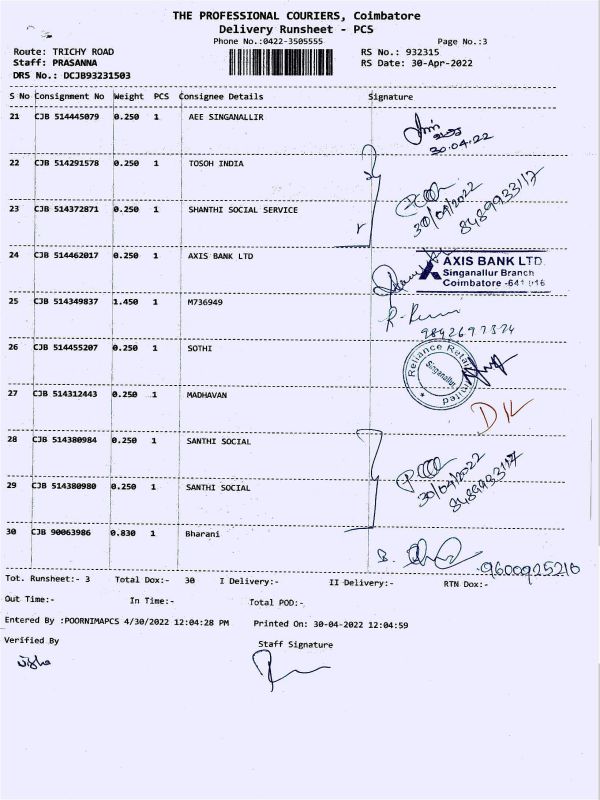 THE PROFESSIONAL COURIERS, Coimbatore
Delivery Runsheet - PCS
Phone No.:0422-3505555 Page No.:3
Route: TRICHY ROAD RS No.: 932315
Staff: PRASANNA RS Date: 30-Apr-2022
DRS No.: DCJB93231503
S No Consignment No Weight PCS Consignee Details Signature
21 CJB 514445079 0.250 1 AEE SINGANALLIR
30.04.22
22 CJB 514291578 0.250 1 TOSOH INDIA
30/04/2022 8489933117
23 CJB 514372871 0.250 1 SHANTHI SOCIAL SERVICE
24 CJB 514462017 0.250 1 AXIS BANK LTD
AXIS BANK LTD.
Singanallur Branch
Coimbatore -641 016
25 CJB 514349837 1.450 1 M736949
9842697324
26 CJB 514455207 0.250 1 SOTHI
Reliance Retail Limited
Singanallur
27 CJB 514312443 0.250 1 MADHAVAN
28 CJB 514380984 0.250 1 SANTHI SOCIAL
30/04/2022
8489933117
29 CJB 514380980 0.250 1 SANTHI SOCIAL
30 CJB 90063986 0.830 1 Bharani
9600925210
Tot. Runsheet:- 3 Total Dox:- 30 I Delivery:- II Delivery:- RTN Dox:-
Out Time:- In Time:- Total POD:-
Entered By :POORNIMAPCS 4/30/2022 12:04:28 PM Printed On: 30-04-2022 12:04:59
Verified By Staff Signature